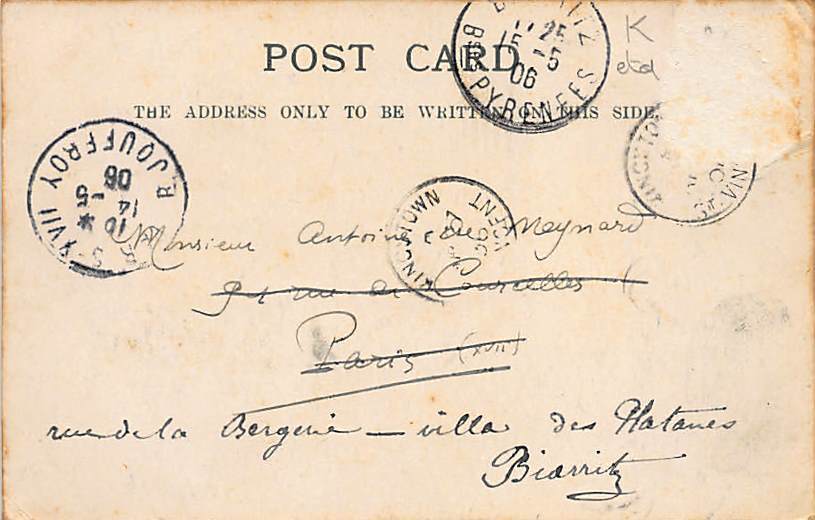 POST CARD
THE ADDRESS ONLY TO BE WRITTEN ON THIS SIDE.
K
BIARRITZ
11 25
15 -5
06
BSES PYRENEES
R. JOUFFROY
06
-5
14
10 *
XVII
KINGSTOWN
ST VINCENT
Monsieur Antoine de Meynard
rue de Courcelles
Paris (XVII)
rue de la Bergerie — villa des Platanes
Biarritz